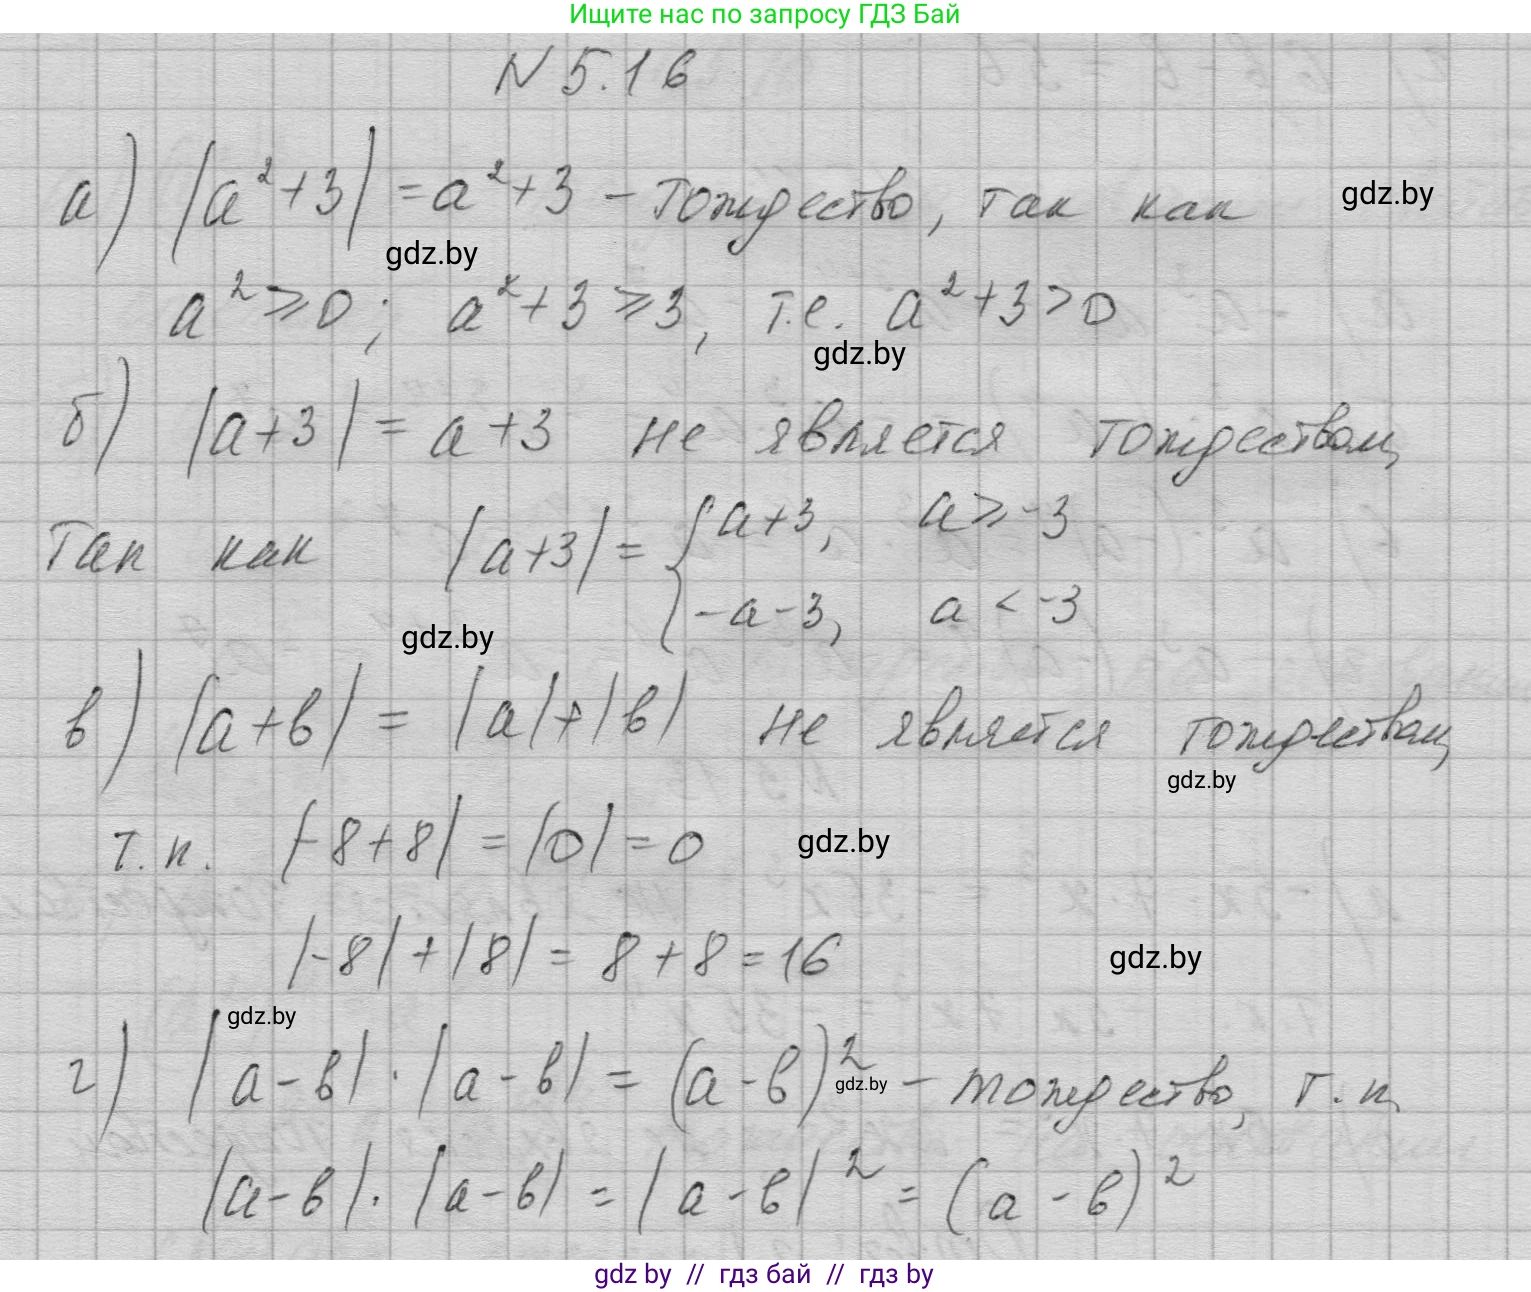 Ищите нас по запросу ГДЗ Бай
N 5.16
а) |a²+3| = a²+3 – тождество, так как
gdz.by
gdz.by
a² ⩾ 0; a²+3 ⩾ 3, т.е. a²+3 > 0
gdz.by
б) |a+3| = a+3 не является тождеством,
так как |a+3| = { a+3, a ⩾ -3
-a-3, a < -3
gdz.by
в) |a+b| = |a|+|b| не является тождеством,
gdz.by
т.к. |-8+8| = |0| = 0
gdz.by
|-8|+|8| = 8+8 = 16
gdz.by
gdz.by
г) |a-b|·|a-b| = (a-b)² – тождество, т.к.
gdz.by
|a-b|·|a-b| = |a-b|² = (a-b)²
gdz by // гдз бай // гдз by